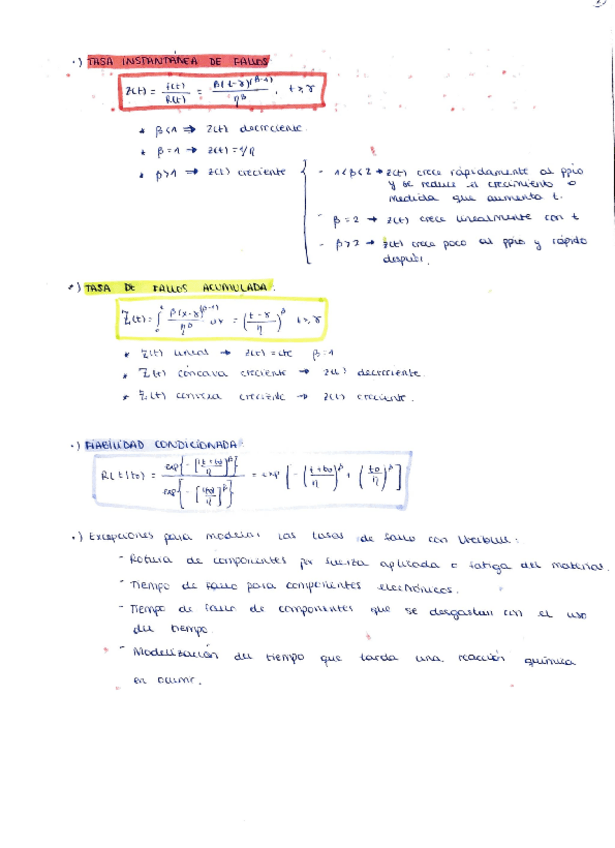 ·) TASA INSTANTÁNEA DE FALLOS
Z(t) = f(t)/R(t) = β(t-γ)^(β-1)/η^β , t ≥ γ
* β<1 ⇒ Z(t) decreciente.
* β=1 ⇒ Z(t)=1/η
* β>1 ⇒ Z(t) creciente
- 1<β<2 → Z(t) crece rápidamente al ppio
y se reduce el crecimiento a
medida que aumenta t.
- β=2 → Z(t) crece linealmente con t
- β>2 → Z(t) crece poco al ppio y rápido
después.
·) TASA DE FALLOS ACUMULADA.
Z(t) = ∫₀ᵗ β(x-γ)^(β-1)/η^β dx = ((t-γ)/η)^β t ≥ γ
* Z(t) lineal → z(t)=cte β=1
* Z(t) cóncava creciente → z(t) decreciente.
* Z(t) convexa creciente → z(t) creciente.
·) FIABILIDAD CONDICIONADA
R(t|t0) = exp{-[(t+t0)/η]^β} / exp{-[(t0)/η]^β} = exp[-((t+t0)/η)^β + (t0/η)^β]
·) Excepciones para modelar las tasas de fallo con Weibull:
- Rotura de componentes por fuerza aplicada o fatiga del material.
- Tiempo de fallo para componentes electrónicos.
- Tiempo de fallo de componentes que se desgastan con el uso
del tiempo.
- Modelización del tiempo que tarda una reacción química
en ocurrir.